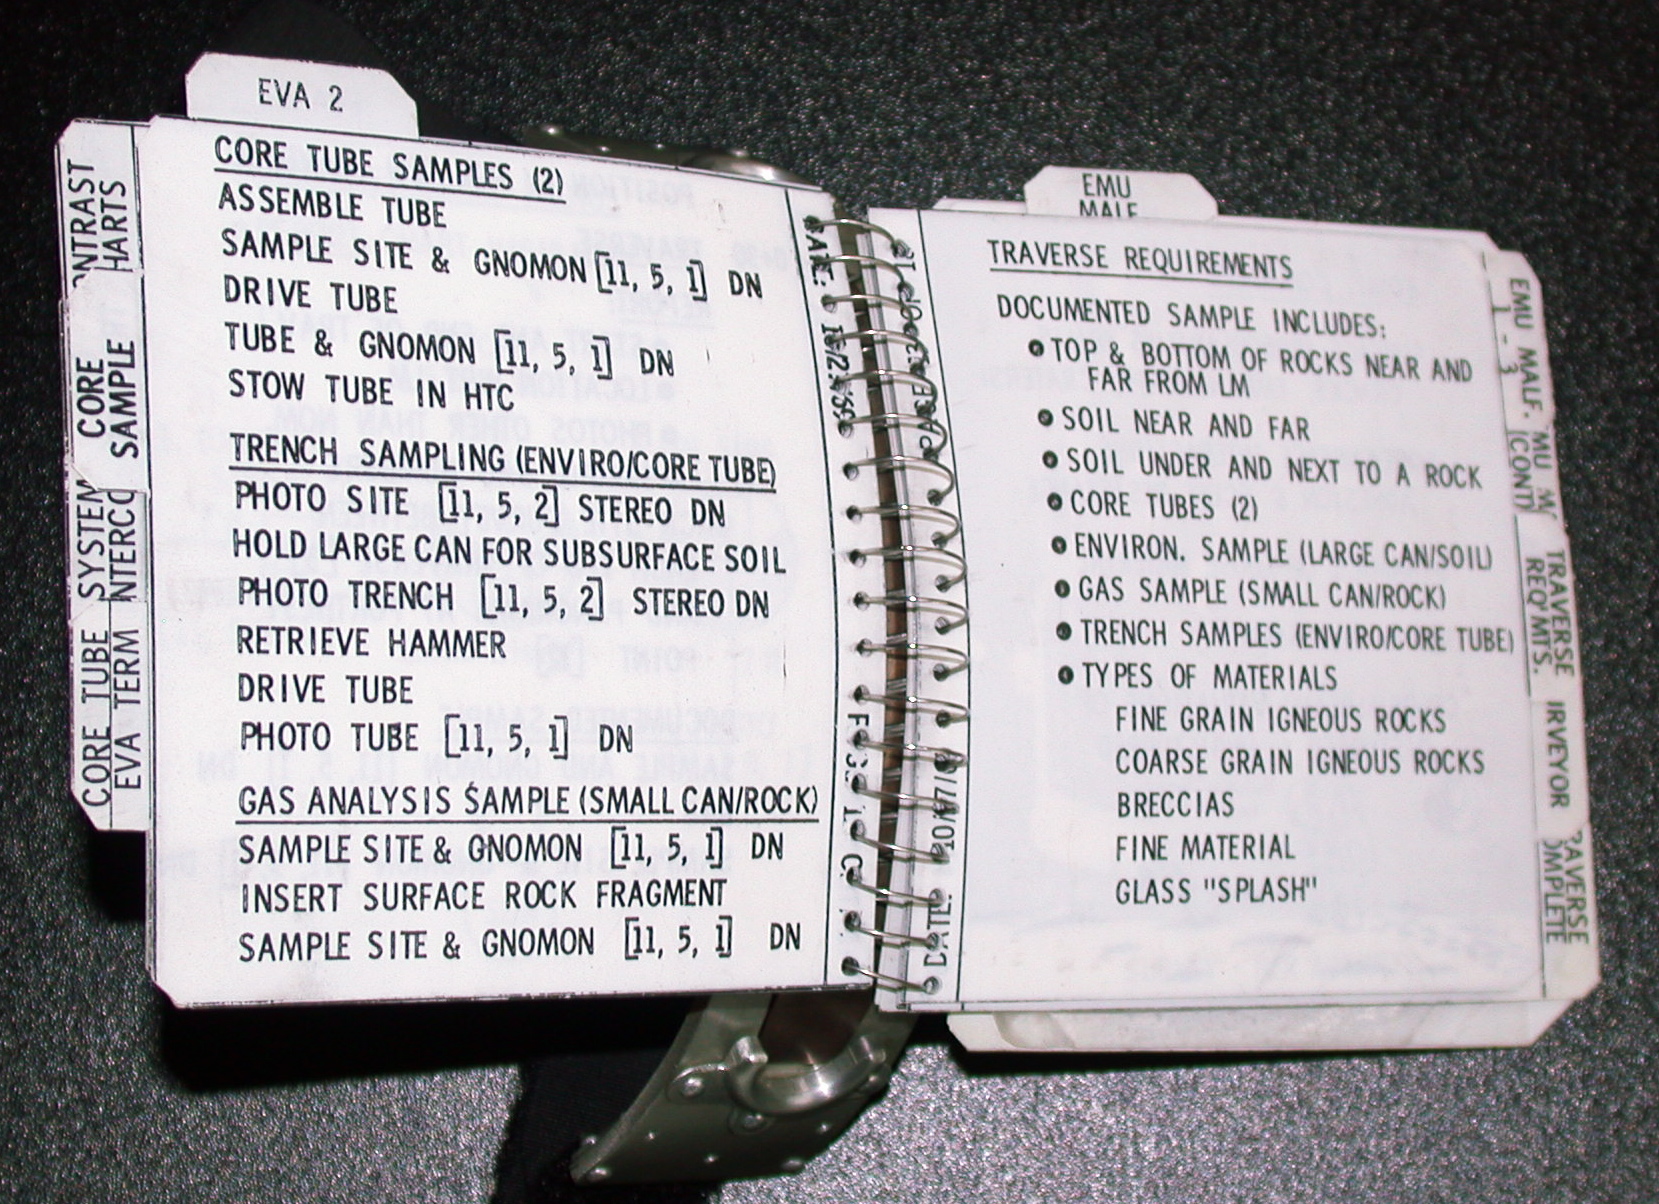 EVA 2
CORE TUBE SAMPLES (2)
ASSEMBLE TUBE
SAMPLE SITE & GNOMON [11, 5, 1] DN
DRIVE TUBE
TUBE & GNOMON [11, 5, 1] DN
STOW TUBE IN HTC
TRENCH SAMPLING (ENVIRO/CORE TUBE)
PHOTO SITE [11, 5, 2] STEREO DN
HOLD LARGE CAN FOR SUBSURFACE SOIL
PHOTO TRENCH [11, 5, 2] STEREO DN
RETRIEVE HAMMER
DRIVE TUBE
PHOTO TUBE [11, 5, 1] DN
GAS ANALYSIS SAMPLE (SMALL CAN/ROCK)
SAMPLE SITE & GNOMON [11, 5, 1] DN
INSERT SURFACE ROCK FRAGMENT
SAMPLE SITE & GNOMON [11, 5, 1] DN
CORE TUBE
EVA TERM
SYSTEM
CORE
SAMPLE
EMU
MALF
TRAVERSE REQUIREMENTS
DOCUMENTED SAMPLE INCLUDES:
• TOP & BOTTOM OF ROCKS NEAR AND
FAR FROM LM
• SOIL NEAR AND FAR
• SOIL UNDER AND NEXT TO A ROCK
• CORE TUBES (2)
• ENVIRON. SAMPLE (LARGE CAN/SOIL)
• GAS SAMPLE (SMALL CAN/ROCK)
• TRENCH SAMPLES (ENVIRO/CORE TUBE)
• TYPES OF MATERIALS
FINE GRAIN IGNEOUS ROCKS
COARSE GRAIN IGNEOUS ROCKS
BRECCIAS
FINE MATERIAL
GLASS "SPLASH"
DATE:
EMU MALF.
1 - 3
(CONT)
TRAVERSE
REQ'MTS.